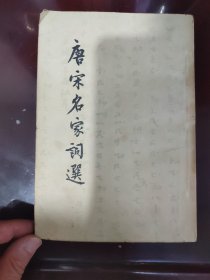 唐宋名家詞選